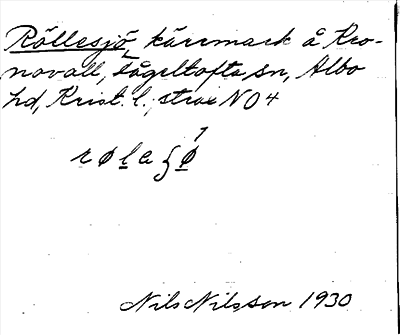 Röllesjö, kärrmark å Kro-
novall, Fågeltofta sn, Albo
hd, Krist. l., strax NO 4
Nils Nilsson 1930